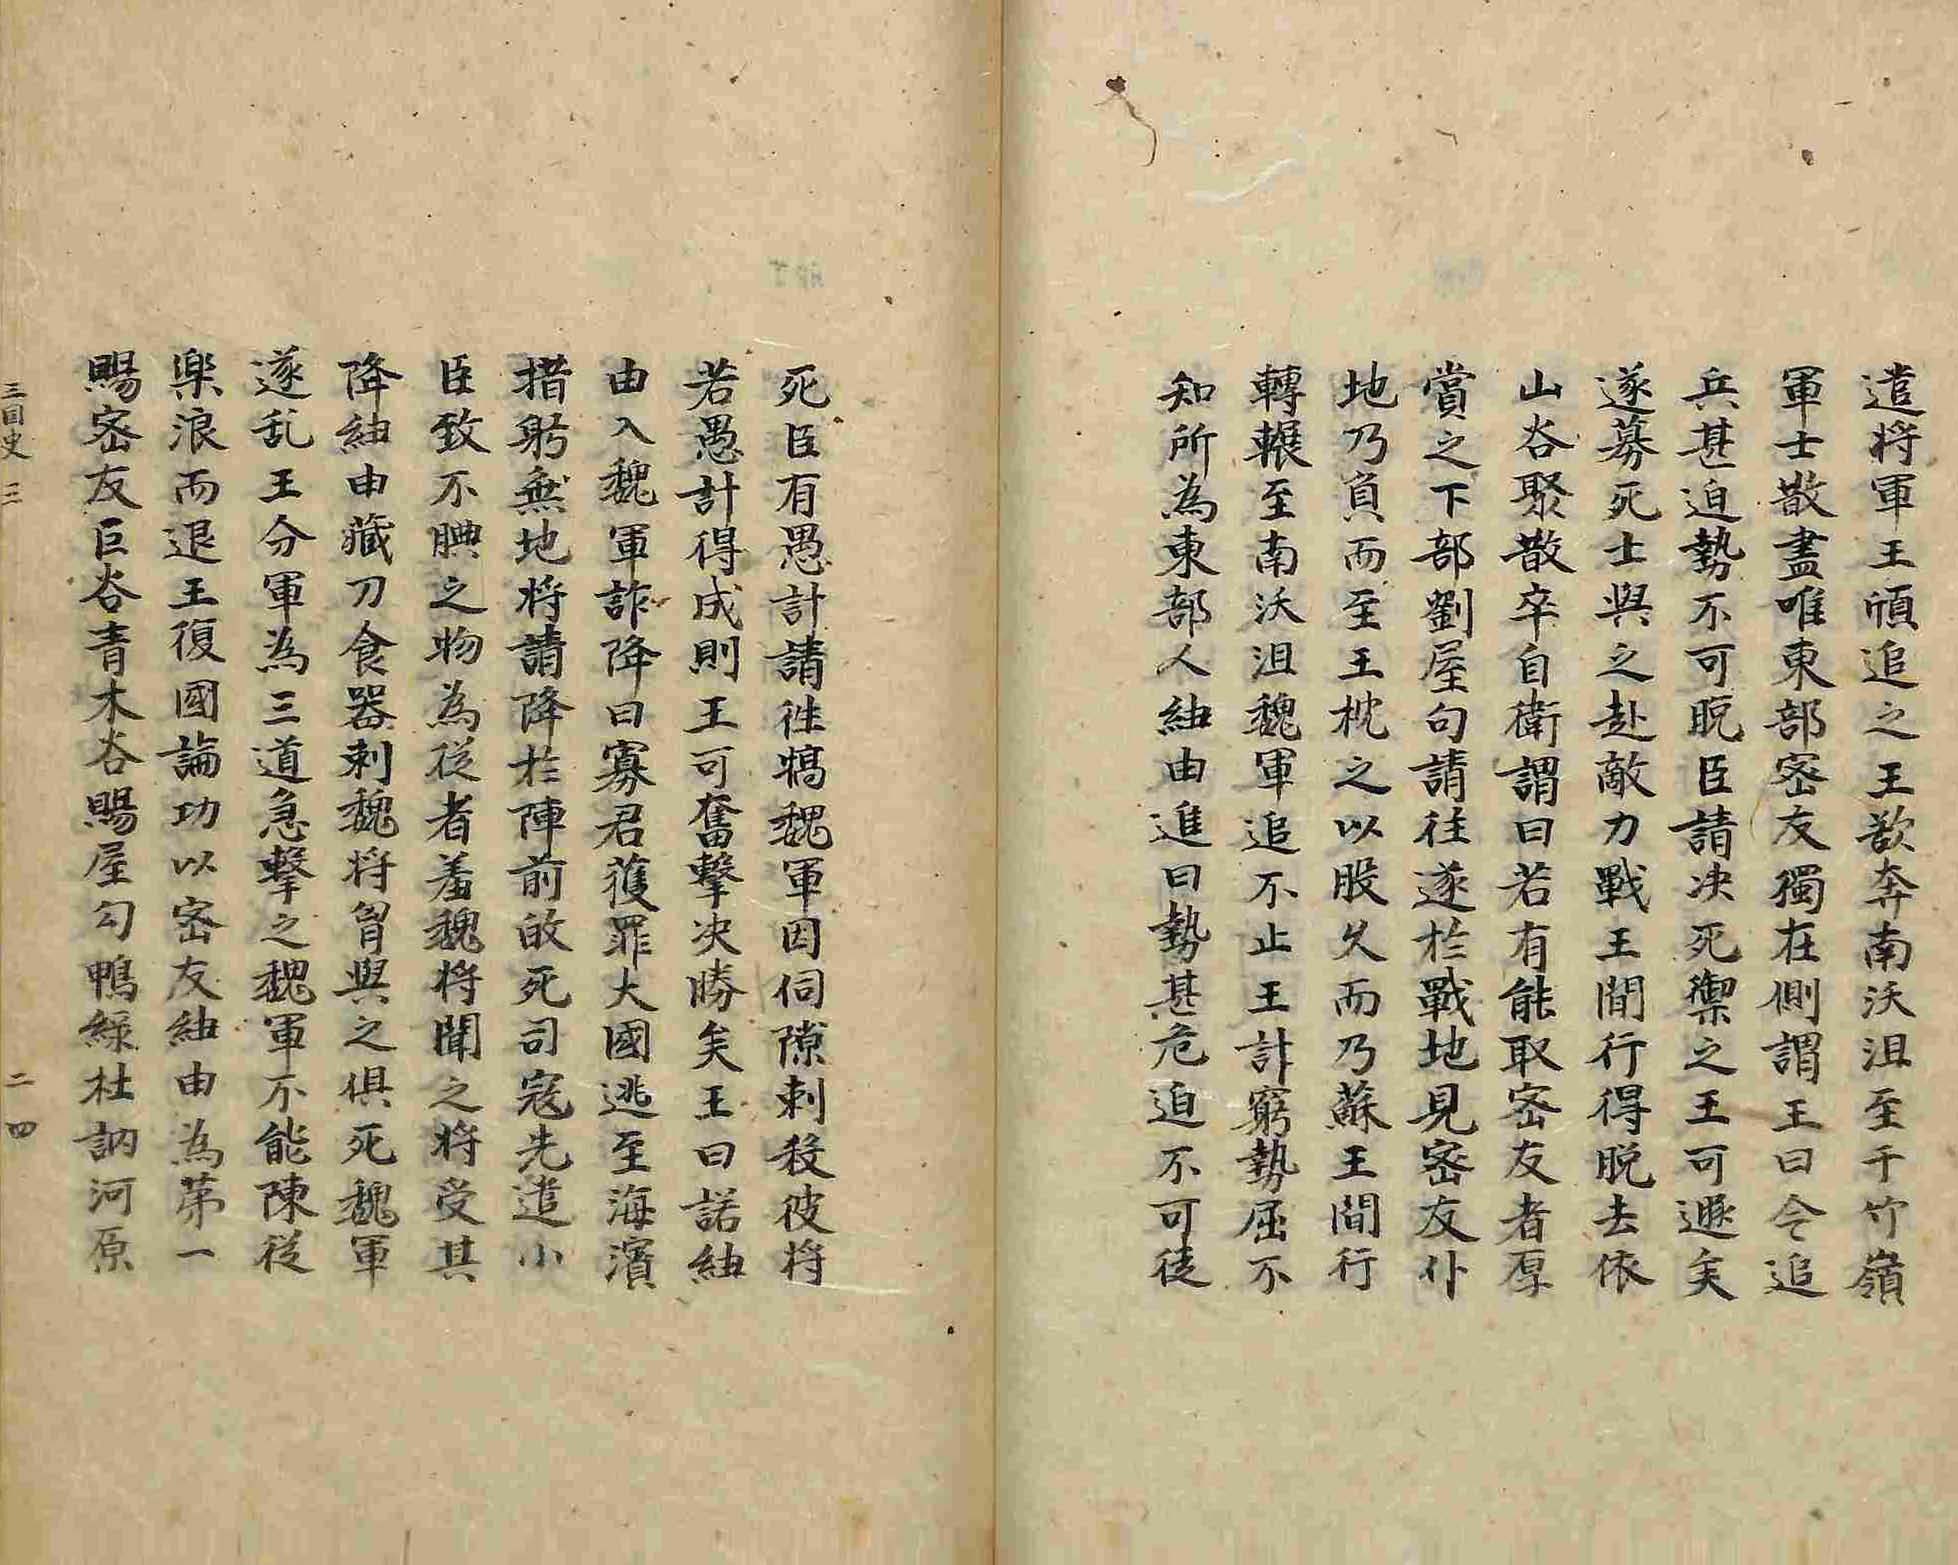 遣将軍王頎追之王欲奔南沃沮至于竹嶺
軍士散盡唯東部密友獨在側謂王曰今追
兵甚迫勢不可脱臣請决死禦之王可遯矣
遂募死士與之赴敵力戰王間行得脱去依
山谷聚散卒自衛謂曰若有能取密友者厚
賞之下部劉屋句請往遂於戰地見密友仆
地乃負而至王枕之以股久而乃蘇王間行
轉輾至南沃沮魏軍追不止王計窮勢屈不
知所為東部人紐由進曰勢甚危迫不可徒
死臣有愚計請往犒魏軍因伺隙刺殺彼将
若愚計得成則王可奮擊决勝矣王曰諾紐
由入魏軍詐降曰寡君獲罪大國逃至海濱
措躬無地将請降於陣前㱕死司寇先遣小
臣致不腆之物為従者羞魏将聞之将受其
降紐由藏刀食器刺魏将胷與之俱死魏軍
遂乱王分軍為三道急擊之魏軍不能陳従
楽浪而退王復國論功以密友紐由為第一
賜密友巨谷青木谷賜屋勾鴨緑杜訥河原
三国史 三 二四